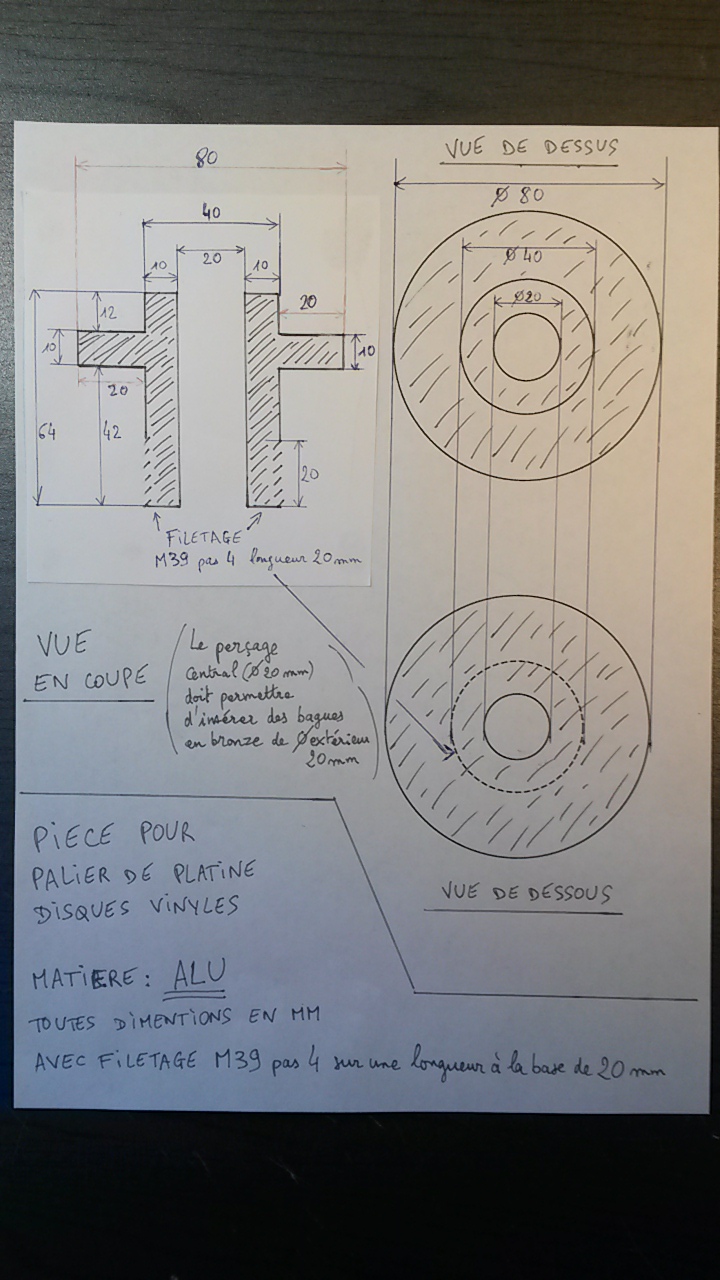 80
40
10
20
10
12
20
10
10
20
64
42
20
FILETAGE
M39 pas 4 longueur 20 mm
VUE DE DESSUS
Ø 80
Ø 40
Ø20
VUE
EN COUPE
Le perçage
central (Ø 20 mm)
doit permettre
d'insérer des bagues
en bronze de Ø extérieur
20 mm
VUE DE DESSOUS
PIECE POUR
PALIER DE PLATINE
DISQUES VINYLES
MATIERE : ALU
TOUTES DIMENTIONS EN MM
AVEC FILETAGE M39 pas 4 sur une longueur à la base de 20 mm